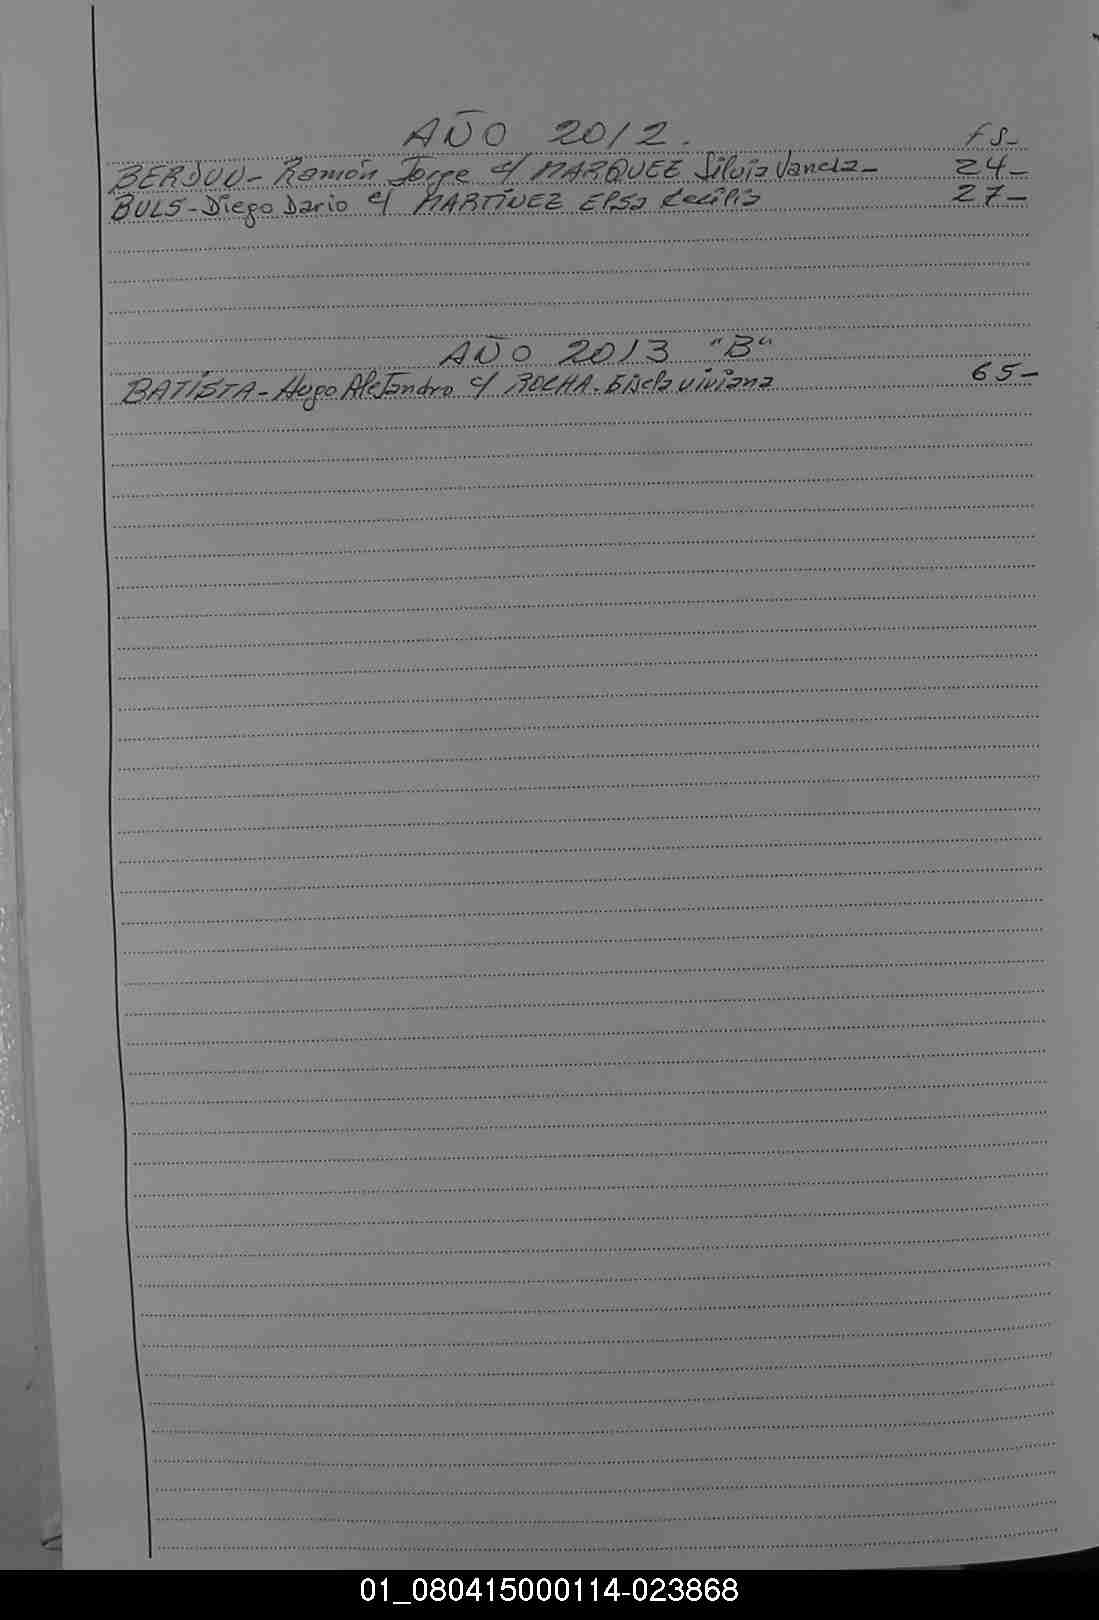 AÑO 2012. FS-
BERJUU- Ramón Jorge c/ MARQUEZ Silvia Vanela- 24-
BULS- Diego Dario c/ MARTÍNEZ Elsa Cecilia 27-
AÑO 2013 "B"
BATÍSTA- Hugo Alejandro c/ ROCHA- Gisela viviana 65-
01_080415000114-023868